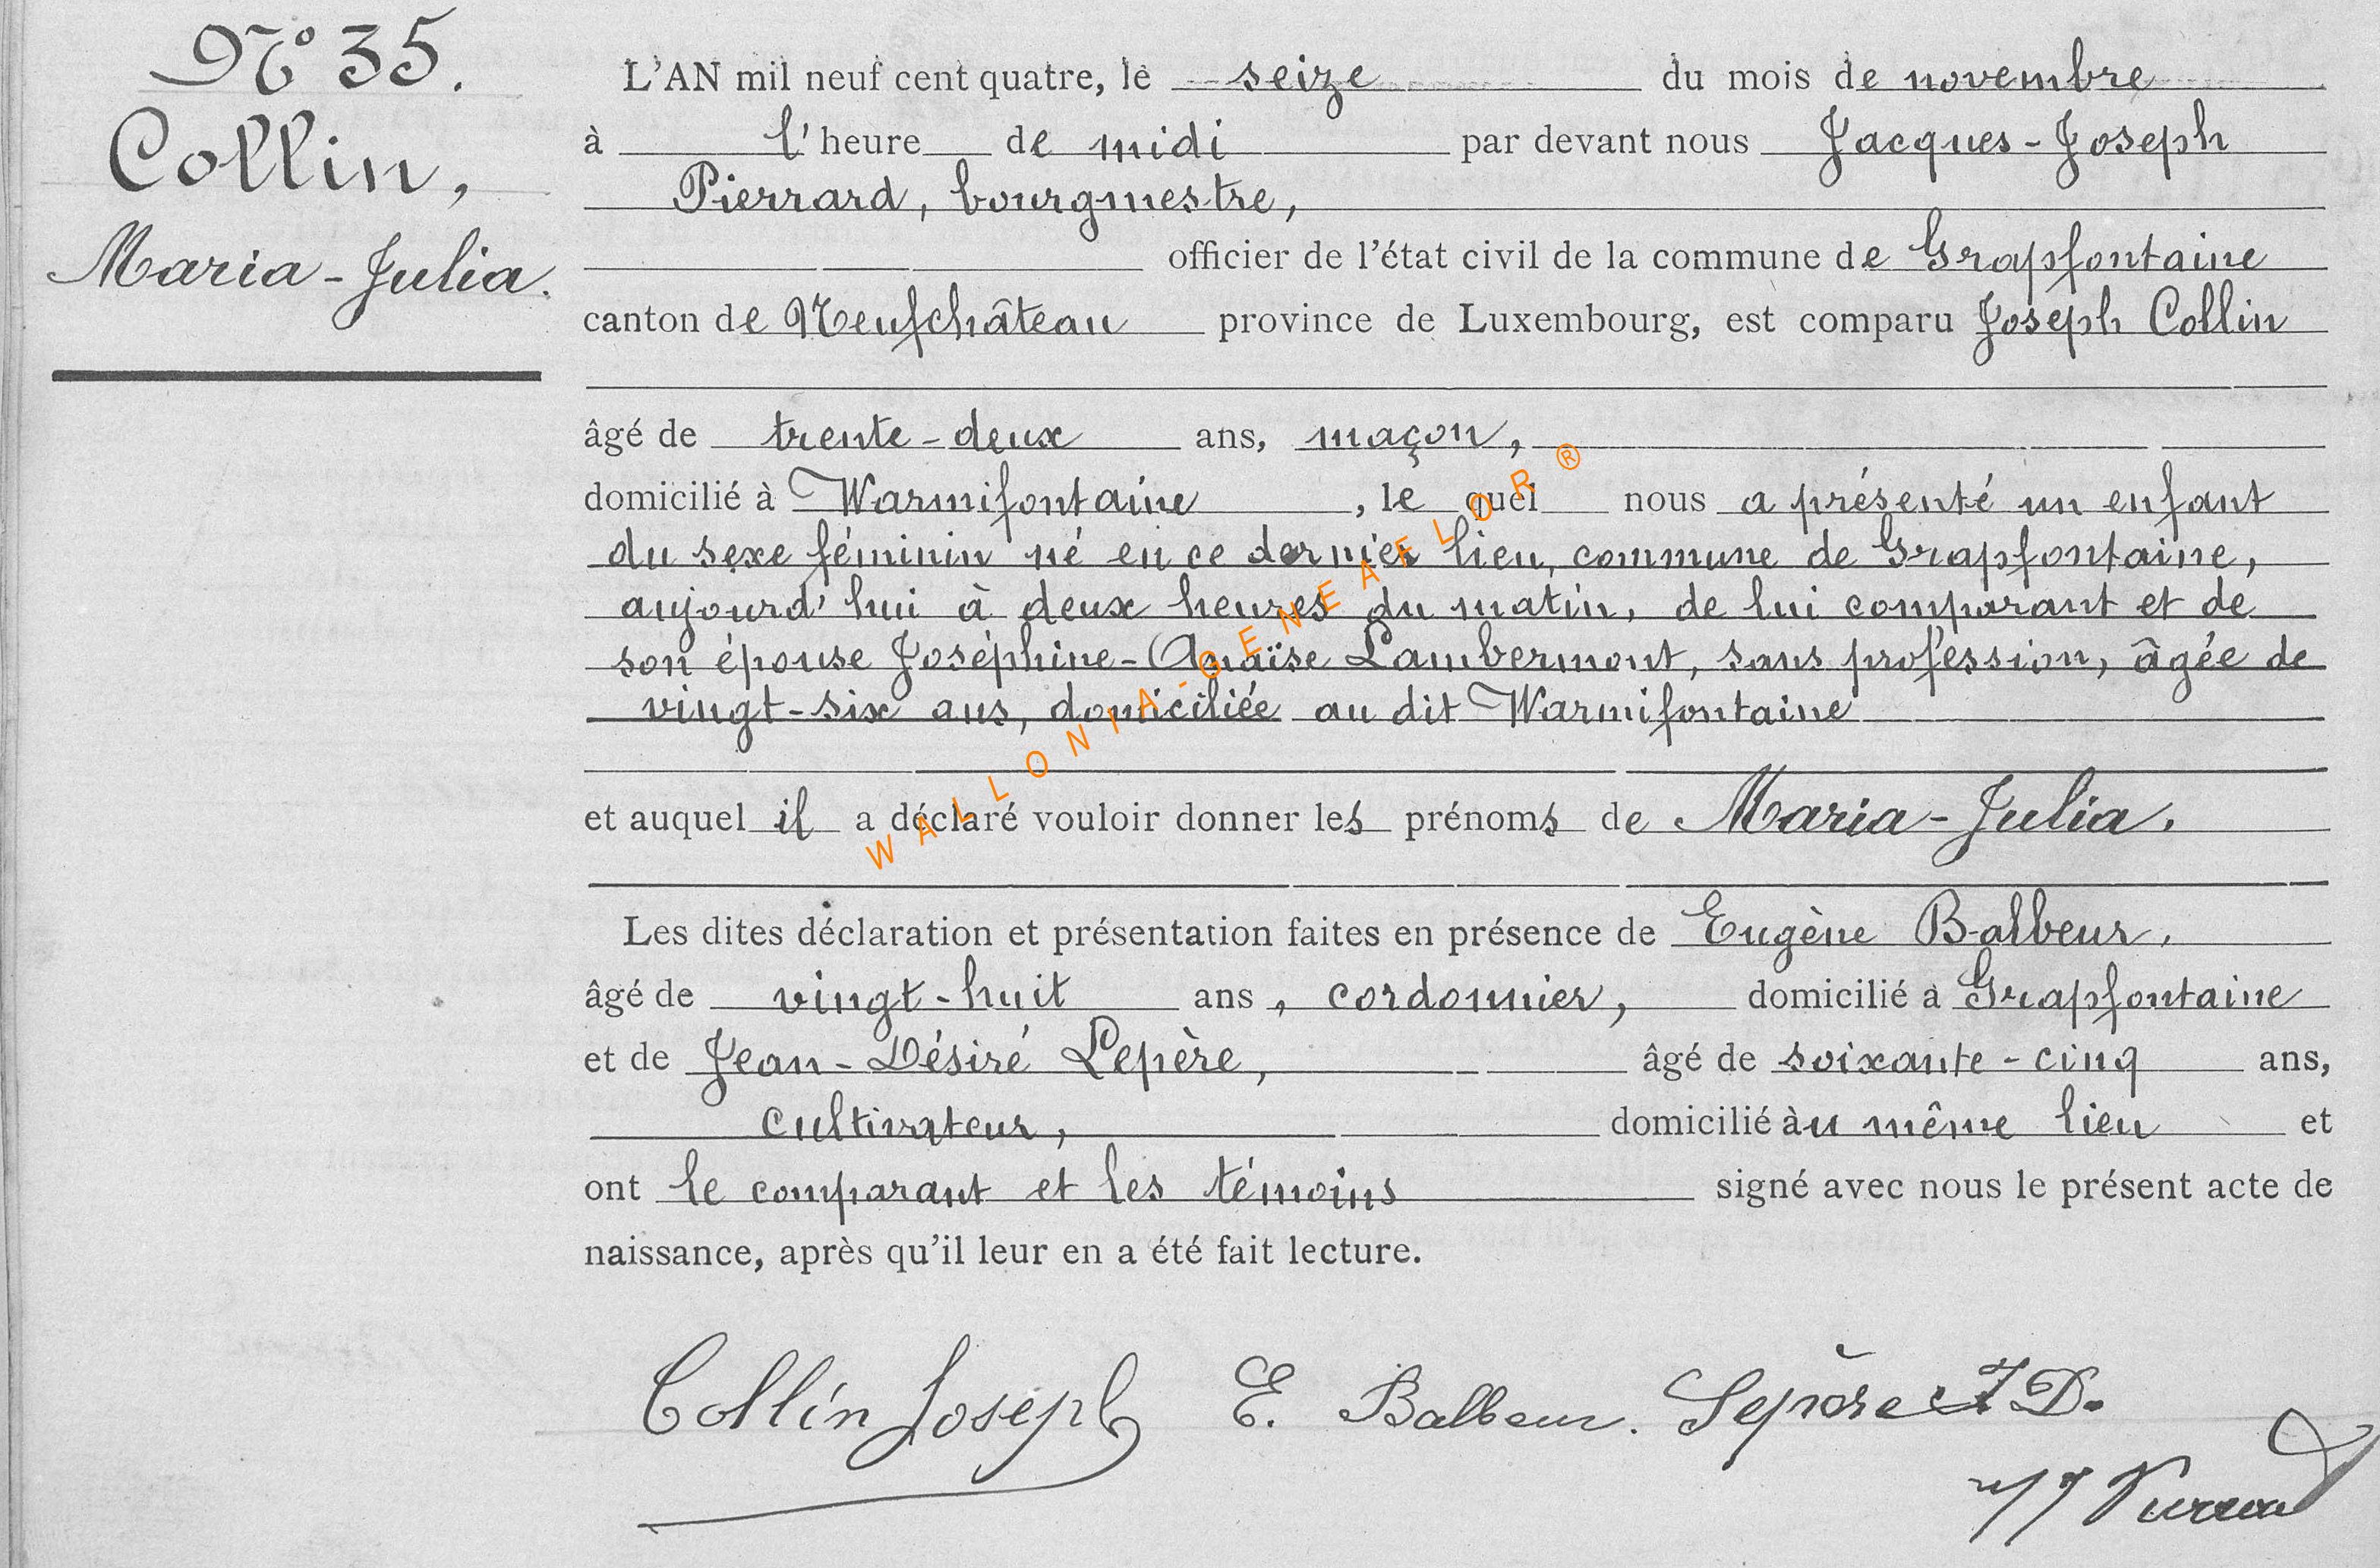 N° 35.
Collin,
Maria-Julia.
L'AN mil neuf cent quatre, le seize du mois de novembre
à l'heure de midi par devant nous Jacques-Joseph
Pierrard, bourgmestre,
officier de l'état civil de la commune de Grapfontaine
canton de Neufchâteau province de Luxembourg, est comparu Joseph Collin
âgé de trente-deux ans, maçon,
domicilié à Warmifontaine, le quel nous a présenté un enfant
du sexe féminin né en ce dernier lieu, commune de Grapfontaine,
aujourd'hui à deux heures du matin, de lui comparant et de
son épouse Joséphine-Anaïse Lambermont, sans profession, âgée de
vingt-six ans, domiciliée au dit Warmifontaine
et auquel il a déclaré vouloir donner les prénoms de Maria-Julia.
Les dites déclaration et présentation faites en présence de Eugène Balbeur,
âgé de vingt-huit ans, cordonnier, domicilié à Grapfontaine
et de Jean-Désiré Lepère, âgé de soixante-cinq ans,
cultivateur, domicilié àu même lieu et
ont le comparant et les témoins signé avec nous le présent acte de
naissance, après qu'il leur en a été fait lecture.
Collin Joseph E. Balbeur. Lepère J D.
JJ Pierrard
WALLONIA-GENEAFLOR®